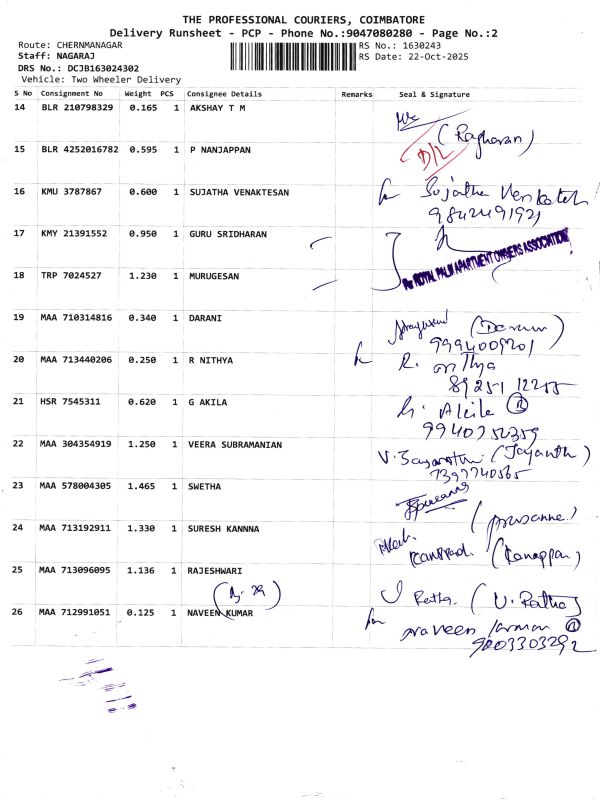 THE PROFESSIONAL COURIERS, COIMBATORE
Delivery Runsheet - PCP - Phone No.:9047080280 - Page No.:2
Route: CHERNMANAGAR
RS No.: 1630243
Staff: NAGARAJ
RS Date: 22-Oct-2025
DRS No.: DCJB163024302
Vehicle: Two Wheeler Delivery
S No Consignment No Weight PCS Consignee Details Remarks Seal & Signature
14 BLR 210798329 0.165 1 AKSHAY T M
(Ragharan)
15 BLR 4252016782 0.595 1 P NANJAPPAN
D/L
16 KMU 3787867 0.600 1 SUJATHA VENAKTESAN
Sujatha Venkatesh
9842491921
17 KMY 21391552 0.950 1 GURU SRIDHARAN
For ROYAL PALM APARTMENT OWNERS ASSOCIATION
18 TRP 7024527 1.230 1 MURUGESAN
19 MAA 710314816 0.340 1 DARANI
9994009201
20 MAA 713440206 0.250 1 R NITHYA
R. nithya
89251 12255
21 HSR 7545311 0.620 1 G AKILA
G. Akila
9940752359
22 MAA 304354919 1.250 1 VEERA SUBRAMANIAN
(Jayanth)
7397740565
23 MAA 578004305 1.465 1 SWETHA
(prasanne)
24 MAA 713192911 1.330 1 SURESH KANNNA
(Kanappan)
25 MAA 713096095 1.136 1 RAJESHWARI
Retha. (U. Ratha)
26 MAA 712991051 0.125 1 NAVEEN KUMAR
9003303292